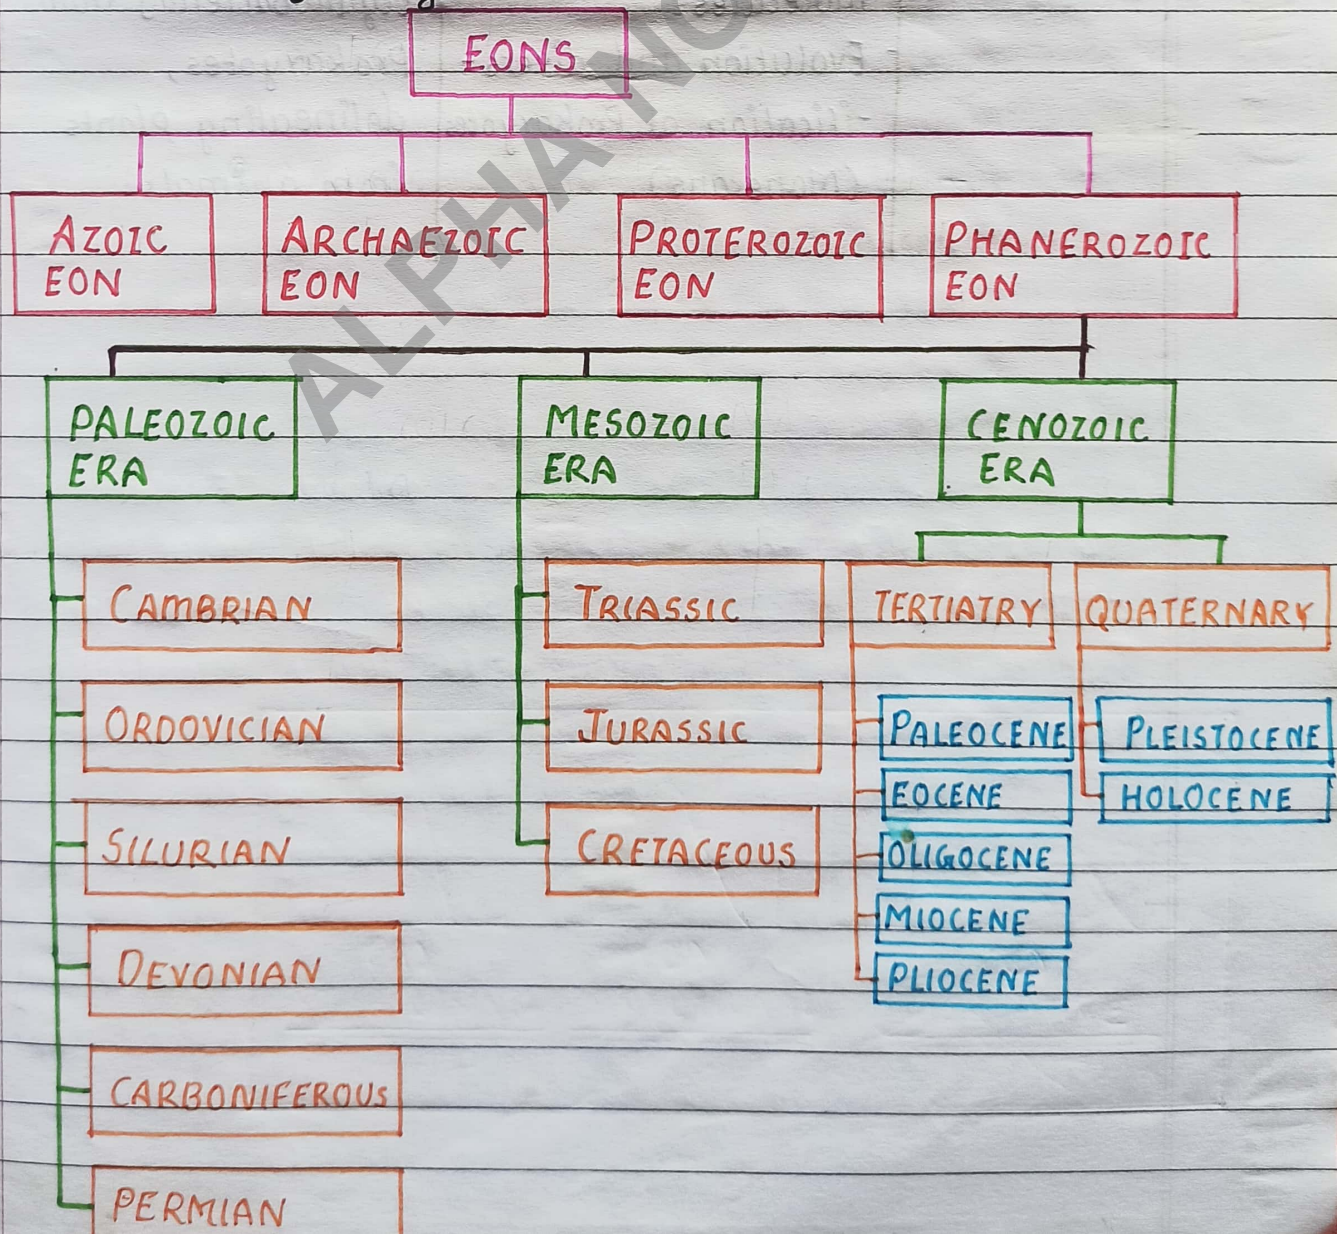 EONS
AZOIC
EON
ARCHAEZOIC
EON
PROTEROZOIC
EON
PHANEROZOIC
EON
PALEOZOIC
ERA
MESOZOIC
ERA
CENOZOIC
ERA
CAMBRIAN
ORDOVICIAN
SILURIAN
DEVONIAN
CARBONIFEROUS
PERMIAN
TRIASSIC
JURASSIC
CRETACEOUS
TERTIATRY
PALEOCENE
EOCENE
OLIGOCENE
MIOCENE
PLIOCENE
QUATERNARY
PLEISTOCENE
HOLOCENE
ALPHA